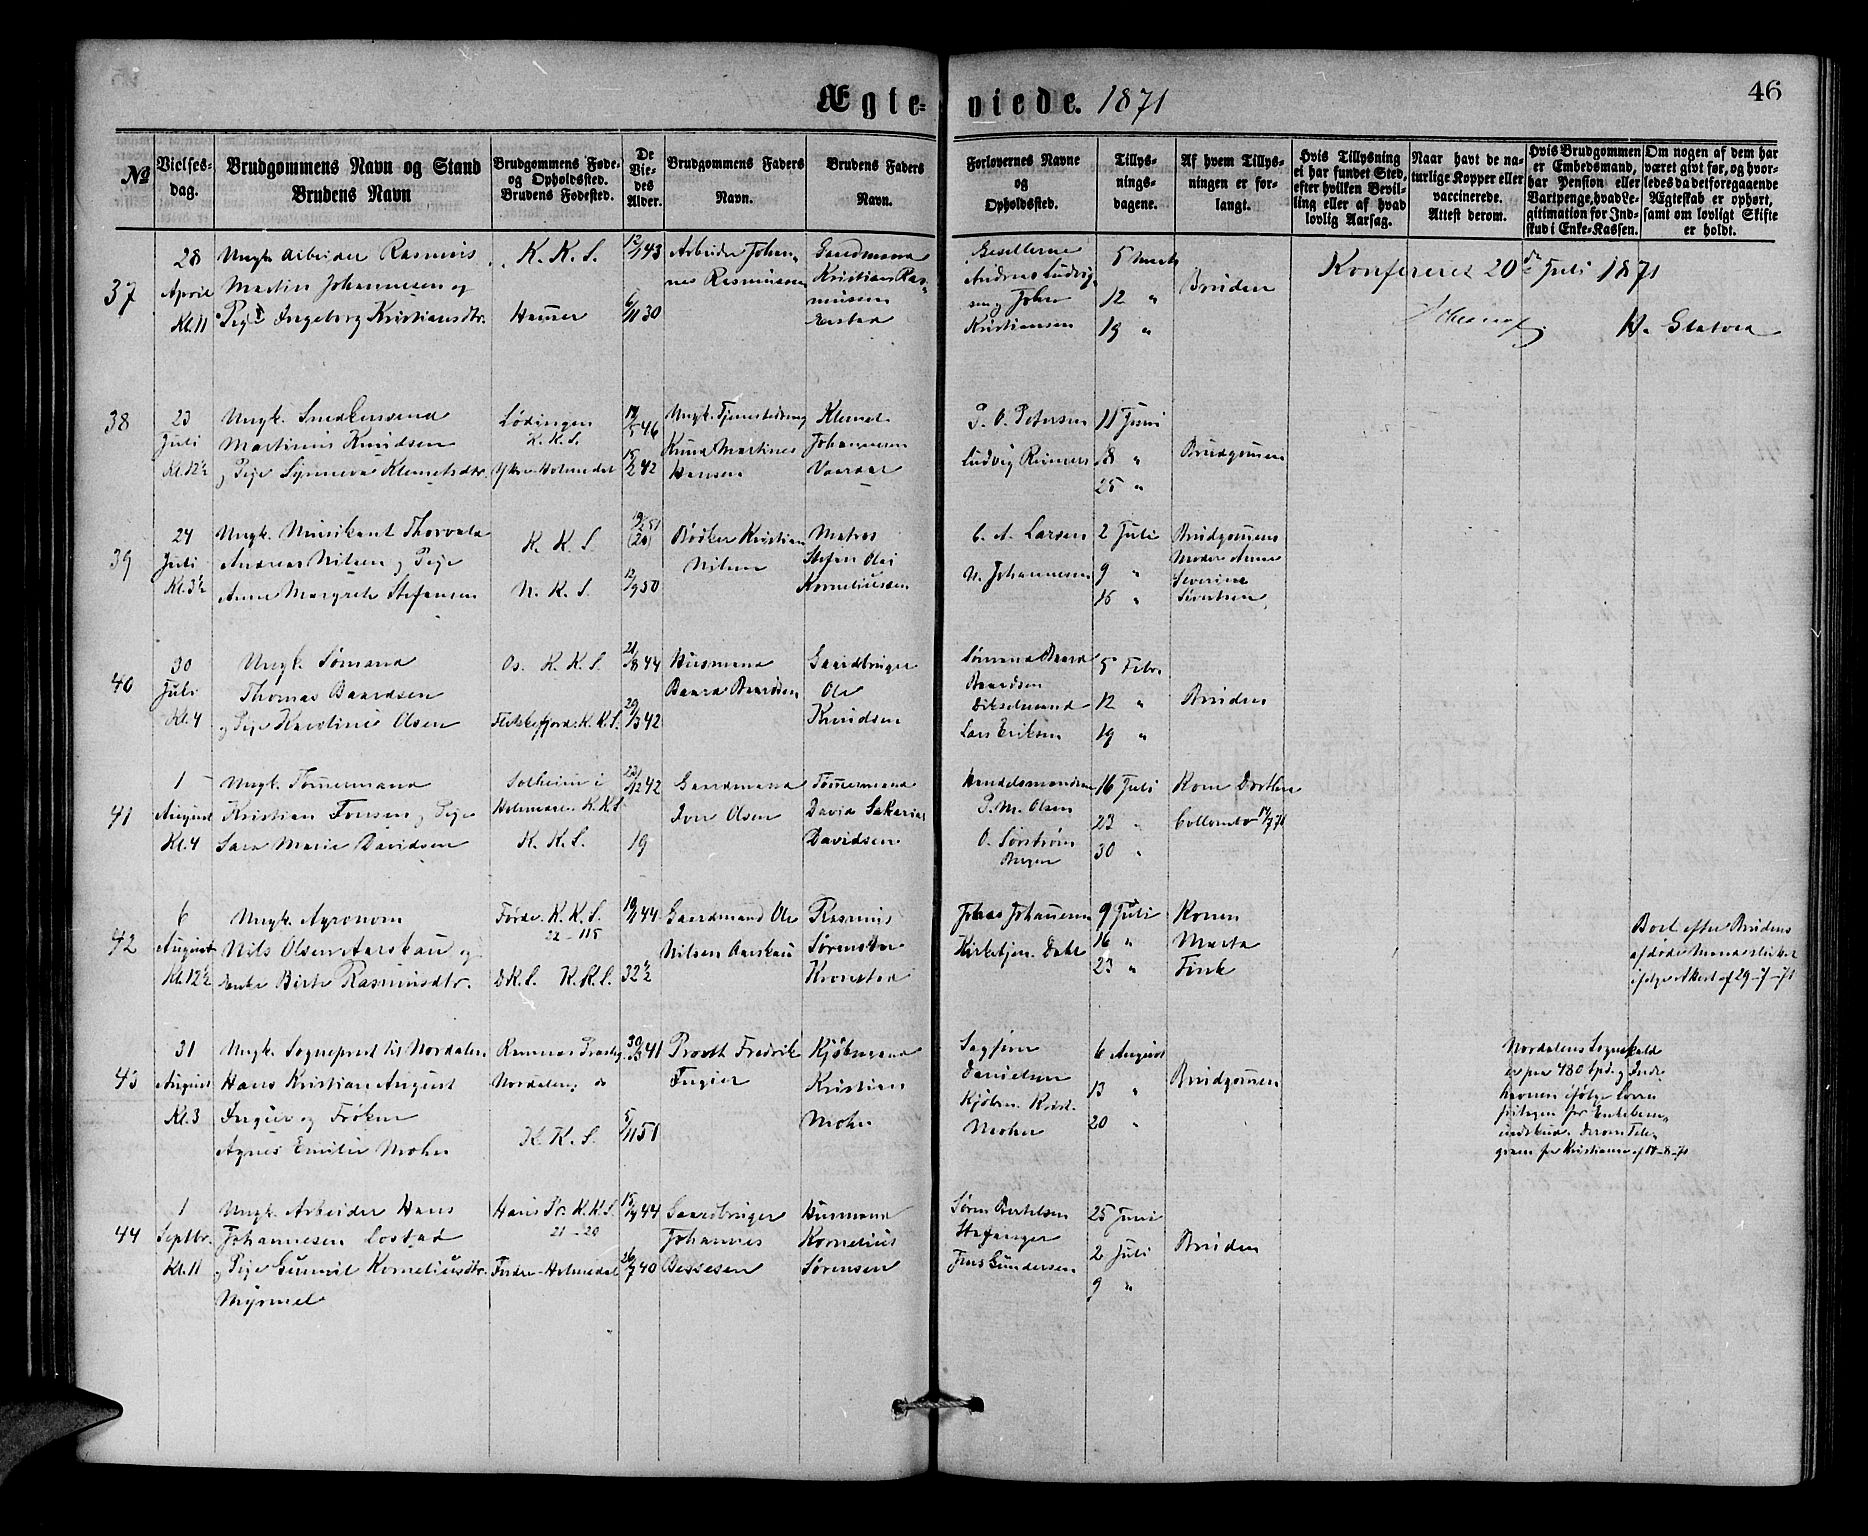 Ægte- viede. 1871
46
No
Vielses-
dag.
Brudgommens Navn og Stand
Brudens Navn
Brudgommens Føde-
og Opholdssted.
Brudens Fødested.
De
Vie-
des
Alder.
Brudgommens Faders
Navn.
Brudens Faders
Navn.
Forlovernes Navne
og
Opholdssted.
Tillys-
nings-
dagene.
Af hvem Tillys-
ningen er for-
langt.
Hvis Tillysning
ei har fundet Sted,
efter hvilken Bevil-
ling eller af hvad
lovlig Aarsag.
Naar havt de na-
turlige Kopper eller
vaccinerede.
Attest derom.
Hvis Brudgommen
er Embedsmand,
har Pension eller
Vartpenge, hvad Le-
gitimation for Ind-
skud i Enke-Kassen.
Om nogen af dem har
været givt før, og hvor-
ledes da det foregaaende
Ægteskab er ophørt,
samt om lovligt Skifte
er holdt.
37
28
April
Kl. 11
Ungk. Arbeider Rasmus
Martin Johannesen og
Pige Ingeborg Kristiansdtr.
K. K. S.
43
30
Arbeider Johan-
nes Rasmussen
Gaardmand
Kristian Ras-
mussen
Gesellerne
Andreas Ludvig-
sen og Johan
Kristiansen
5 Marts
12 "
19 "
Bruden
Konfereret 20de Juli 1871
38
23
Juli
Kl. 12½
Ungk. Snedkersvend
Martinus Knudsen
og Pige Synneva Klemetsdtr.
Lødingen
K. K. S.
Ytre-Holmedal
17/5 46
15/2 42
Knud Martines
Hansen
Klemet
Johannesen
P. O. Petersen
Ludvig Reimers
11 Juni
18 "
25 "
Brudgommen
39
24
Juli
Kl. 3½
Ungk. Musikant Thorvald
Andreas Nilsen og Pige
Anne Margrete Stefansen
K. K. S.
N. K. S.
(20)
12/9 50
Bødker Kristian
Nilsen
Matros
Stefan Olai
Korneliussen
C. A. Larsen
N. Johannesen
2 Juli
9 "
16 "
Brudgommens
Moder Anne
Severine
Sivertsen
40
30
Juli
Kl. 4
Ungk. Sømand
Thomas Baardsen
og Pige Karoline Olsen
Os. K. K. S.
Flekkefjord. K. K. S.
21/8 44
29/3 42
Husmand
Baard Baardsen
Gaardbruger
Ole
Knudsen
Sømand Baard
Baardsen
Lars Eriksen
5 Febr.
12 "
19 "
Bruden
41
1
August
Kl. 4
Ungk. Tømmermand
Kristian Iversen og Pige
Sara Marie Davidsen
Solheim i
Holmedal. K. K. S.
K. K. S.
42
19
Gaardmand
Iver Olsen
Tømmermand
David Sakarias
Davidsen
Handelsmændene
P. M. Olsen
O. Sørstrøm
Bergen
16 Juli
23 "
30 "
Kone Dorthea
42
6
August
Kl. 12½
Ungk. Agronom
Nils Olsen Aarskau og
Enke Birte Rasmusdtr.
Førde. K. K. S.
22-115
D. K. S. K. K. S.
44
32½
Gaardmand Ole
Nilsen Aarskau
Rasmus
Sørensen
Kronstad
Johan Johannesen
Kirketjen. Dahl
9 Juli
16 "
23 "
Konen
Marta
Fink
Boet efter Brudens
afdøde Mand sluttet
ifølge Attest af 29-7-71
43
31
August
Kl. 3
Ungk. Sogneprest til Nordalen
Hans Kristian August
Ingier og Frøken
Agnes Emilie Mohn
Nordalens do
K. K. S.
41
5/11 51
Provst Fredrik
Ingier
Kjøbmand
Kristian
Mohn
Sagfører
Danielsen
Kjøbm. Krist.
Mohn
6 August
13 "
20 "
Brudgommen
Nordalens Sognekald
er paa 480 Spd. og Inde-
haveren ifølge Loven
fritagen for Enkekasse-
indskud. Derom Tele-
gram fra Kristiania
44
1
Septbr.
Kl. 11
Ungk. Arbeider Hans
Johannesen Lostad
og Pige Gunnil Korneliusdtr.
Myrmel
Haus Pr. K. K. S.
21-20
Indre-Holmedal
15/9 44
26/7 40
Gaardbruger
Johannes
Bessesen
Husmand
Kornelius
Sørensen
Søren Bertelsen
Stefanger
Jens Gundersen
25 Juni
2 Juli
9 "
Bruden